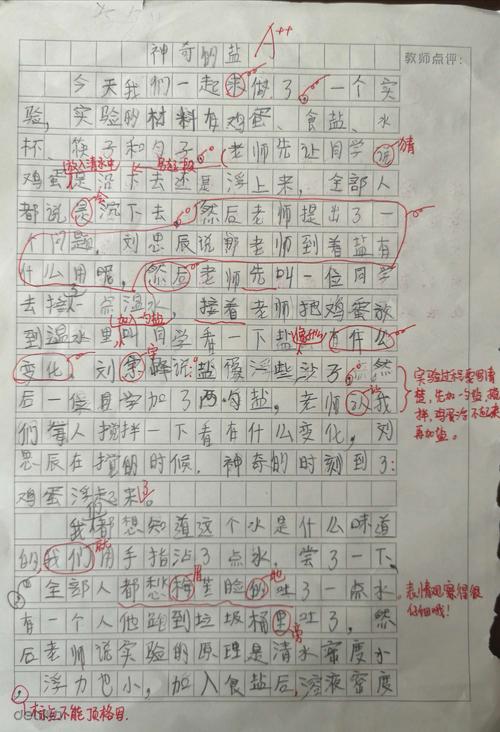 神奇的盐
A++
教师点评:
今天我们一起来做了一个实
验,实验的材料有鸡蛋、食盐、水
杯、筷子和勺子。老师先让同学说
猜
放入清水中
鸡蛋是沉下去还是浮上来,全部人
都说是沉下去。然后老师提出了一
会
问题,刘思辰说那老师到着盐有
什么用呢,然后老师先叫一位同学
去接一点温水,接着老师把鸡蛋放
加一勺盐
到温水里叫同学看一下盐有什么
变化,刘思辰说:盐像浮些沙了。然
后一位同学加了两勺盐,老师说我
让
们每人搅拌一下看有什么变化,刘
思辰在搅的时候,神奇的时刻到了:
鸡蛋浮起来了
实验过程要写清
楚,先加一勺盐,搅
拌,鸡蛋浮不起来
再加盐。
我都想知道这个水是什么味道
们
的我们用手指沾了点水,尝了一下,
就
全部人都愁眉苦脸的吐了一点水
有一个人他跑到垃圾桶里吐了,然
旁
表情观察得很
仔细哦!
后老师说实验的原理是清水密度小
浮力也小,加入食盐后,溶液密度
标点不能顶格目.